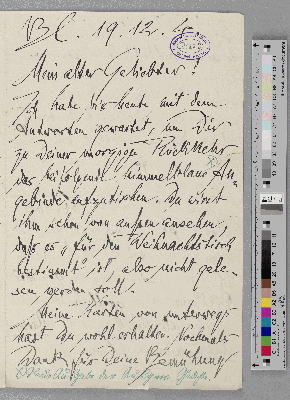 BC. 19.12.
Mein alter Geliebter!
Ich habe bis heute mit dem
Antworten gewartet, um Dir
zu Deiner morgigen Rückkehr
das beifolgende himmelblaue An-
gebinde Du wirst
ihm schon von aussen ansehen,
dass es „für den Weihnachtstisch
bestimmt" ist, also nicht gele-
sen werden soll.
Meine Karten von unterwegs
hast Du wohl erhalten. Nochmals
Dank für Deine Bemühung